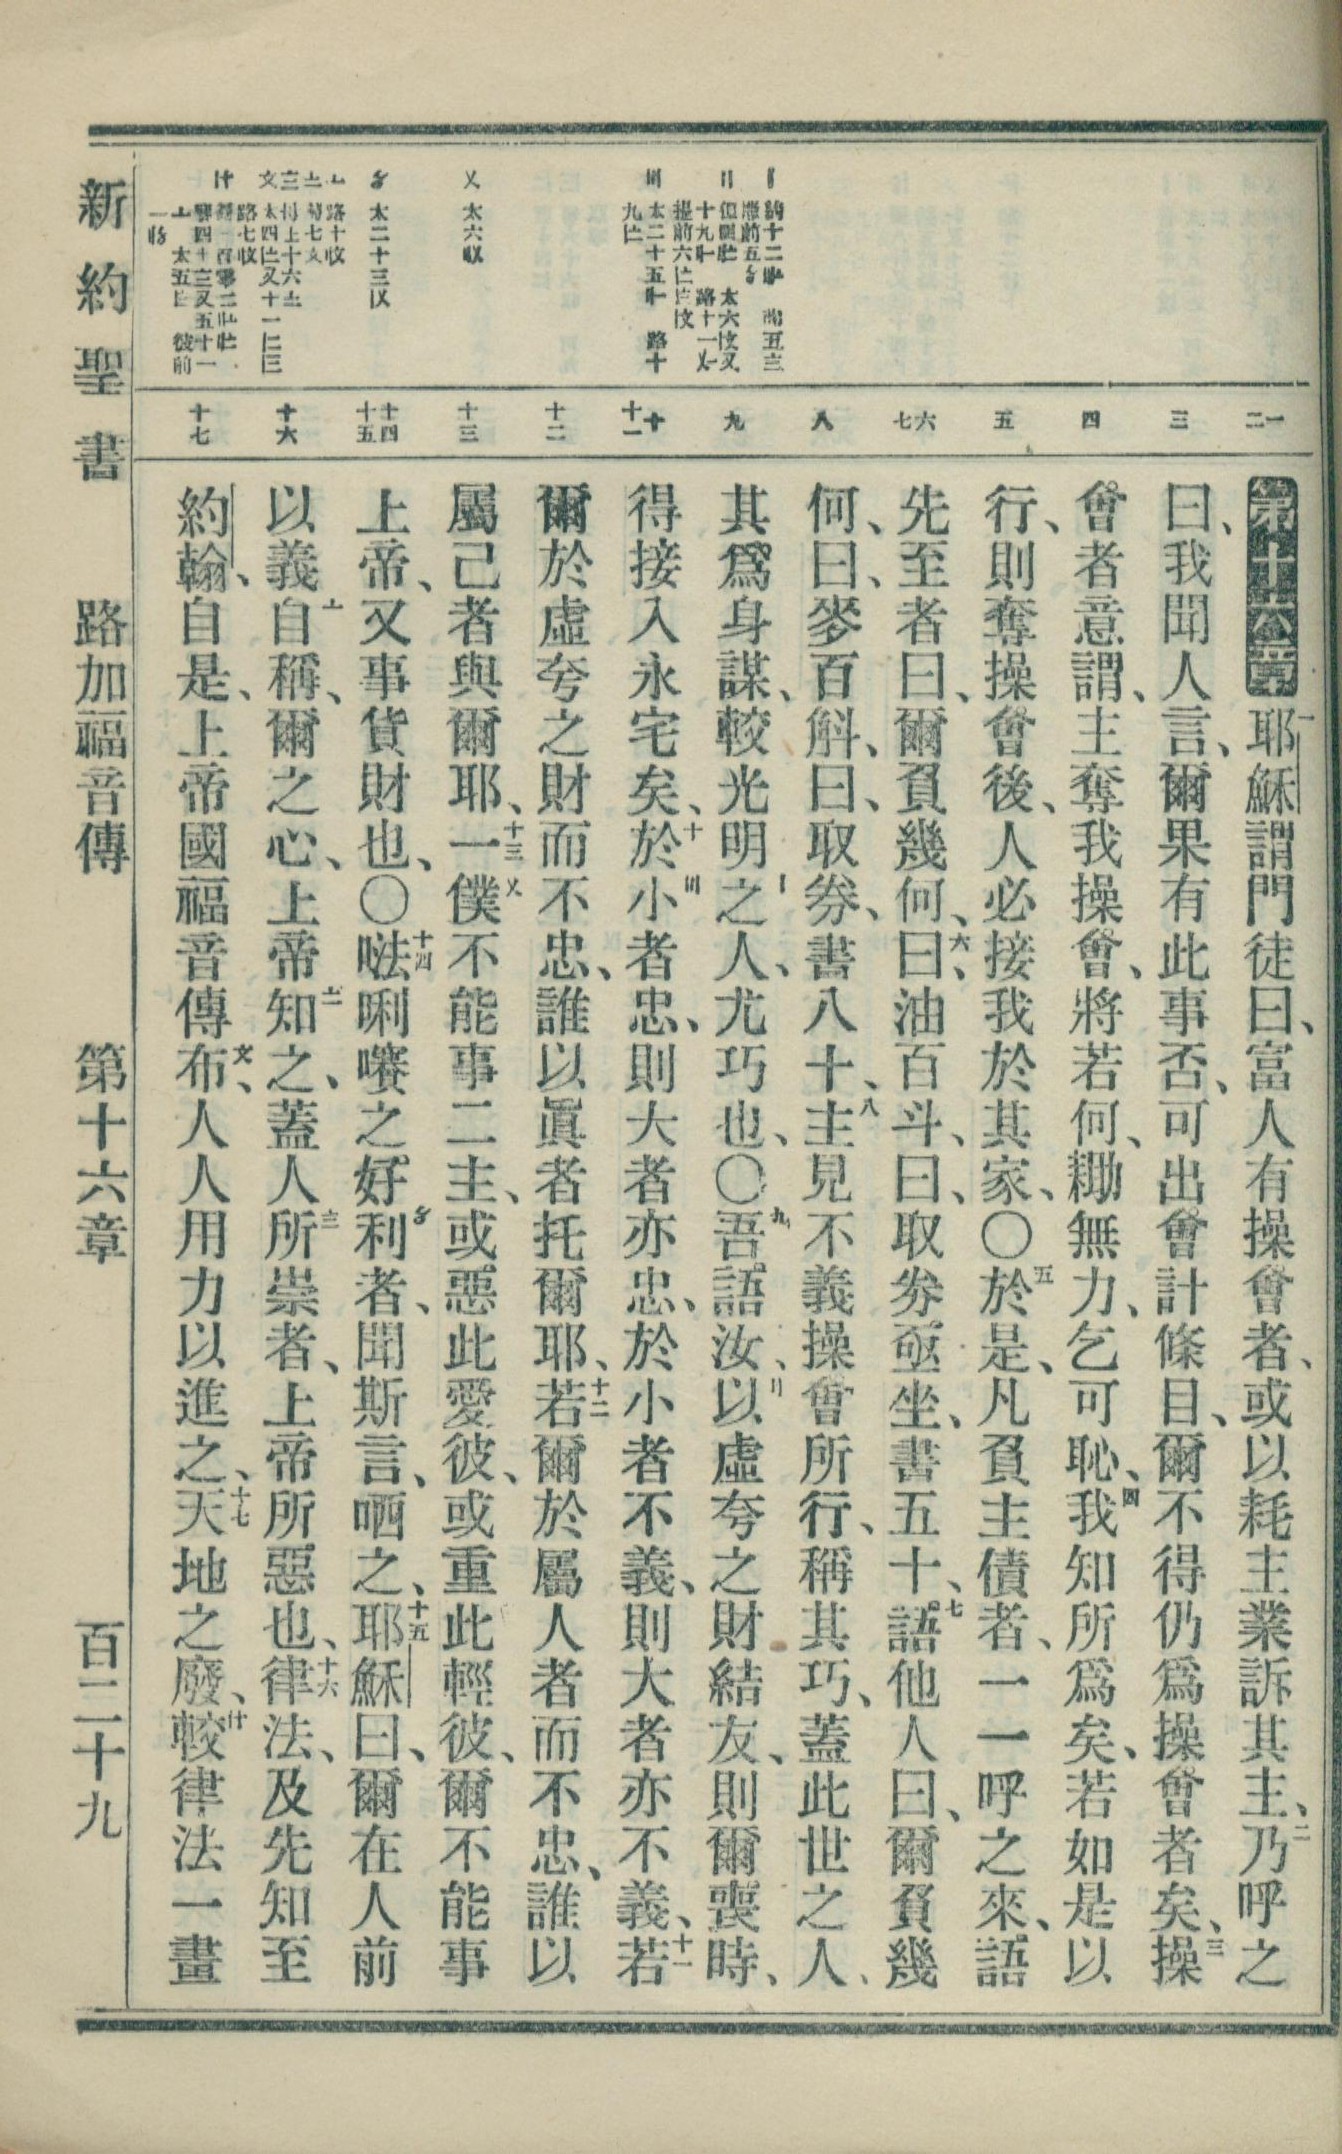 第十六章 一耶穌謂門徒曰、富人有操會者、或以耗主業訴其主、二乃呼之
曰、我聞人言、爾果有此事否、可出會計條目、爾不得仍爲操會者矣、三操
會者意謂、主奪我操會、將若何、耡無力、乞可恥、四我知所爲矣、若如是以
行、則奪操會後、人必接我於其家、〇五於是、凡負主債者、一一呼之來、語
先至者曰、爾負幾何、六曰、油百斗、曰、取券亟坐、書五十、七語他人曰、爾負幾
何、曰、麥百斛、曰、取券、書八十、八主見不義操會所行、稱其巧、蓋此世之人、
其爲身謀、較光明之人、尤巧也、〇九吾語汝、以虛夸之財結友、則爾喪時、
得接入永宅矣、十於小者忠、則大者亦忠、於小者不義、則大者亦不義、十一若
爾於虛夸之財而不忠、誰以眞者托爾耶、十二若爾於屬人者而不忠、誰以
屬己者與爾耶、十三一僕不能事二主、或惡此愛彼、或重此輕彼、爾不能事
上帝、又事貨財也、〇十四𠵽唎㘔之好利者、聞斯言、哂之、十五耶穌曰、爾在人前
以義自稱、爾之心、上帝知之、蓋人所崇者、上帝所惡也、十六律法、及先知至
約翰、自是、上帝國福音傳布、人人用力以進之、十七天地之廢、較律法一畫
一二
三
四
五
六七
八
九
十十一
十二
十三
十四十五
十六
十七
新約聖書 路加福音傳 第十六章 百二十九